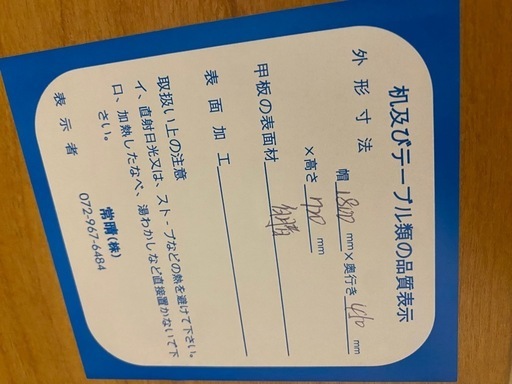 机及びテーブル類の品質表示
外形寸法 幅1800mm×奥行き
mm
×高さ700mm
甲板の表面材
表面加工
取扱い上の注意
イ、直射日光又は、スト-ブなどの熱を避けて下さい。
ロ、加熱したなべ、湯わかしなど直接置かないで下さい。
表示者 常晴(株)
072-967-6484